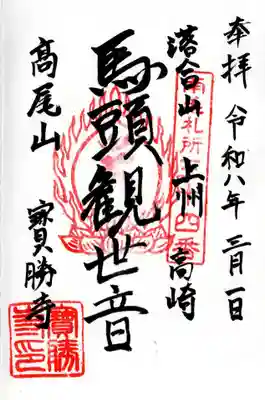 奉拝 令和八年 三月一日
落合山 上州 高崎
札所
番
馬頭観世音
髙尾山 寳勝寺